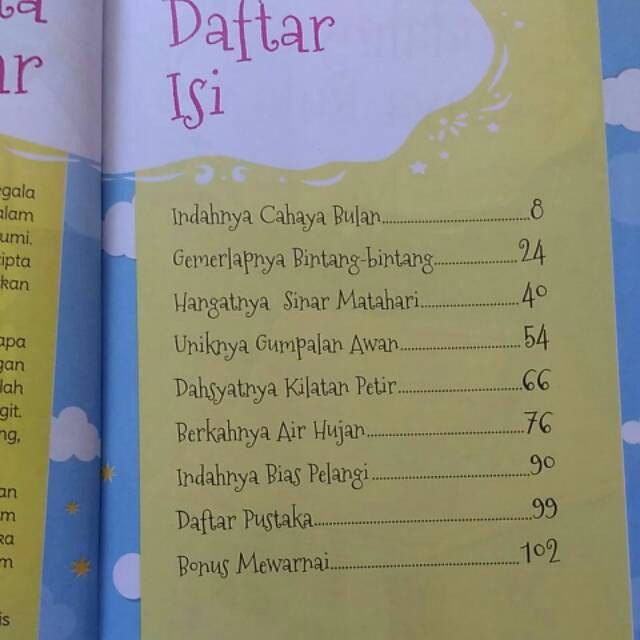 ta
ar
gala
alam
umi.
ipta
kan
apa
gan
lah
git.
ng,
an
m
ka
m
is
Daftar
Isi
Indahnya Cahaya Bulan..............................8
Gemerlapnya Bintang-bintang.................24
Hangatnya Sinar Matahari....................40
Uniknya Gumpalan Awan.........................54
Dahsyatnya Kilatan Petir.........................66
Berkahnya Air Hujan................................76
Indahnya Bias Pelangi................................90
Daftar Pustaka............................................99
Bonus Mewarnai......................................102